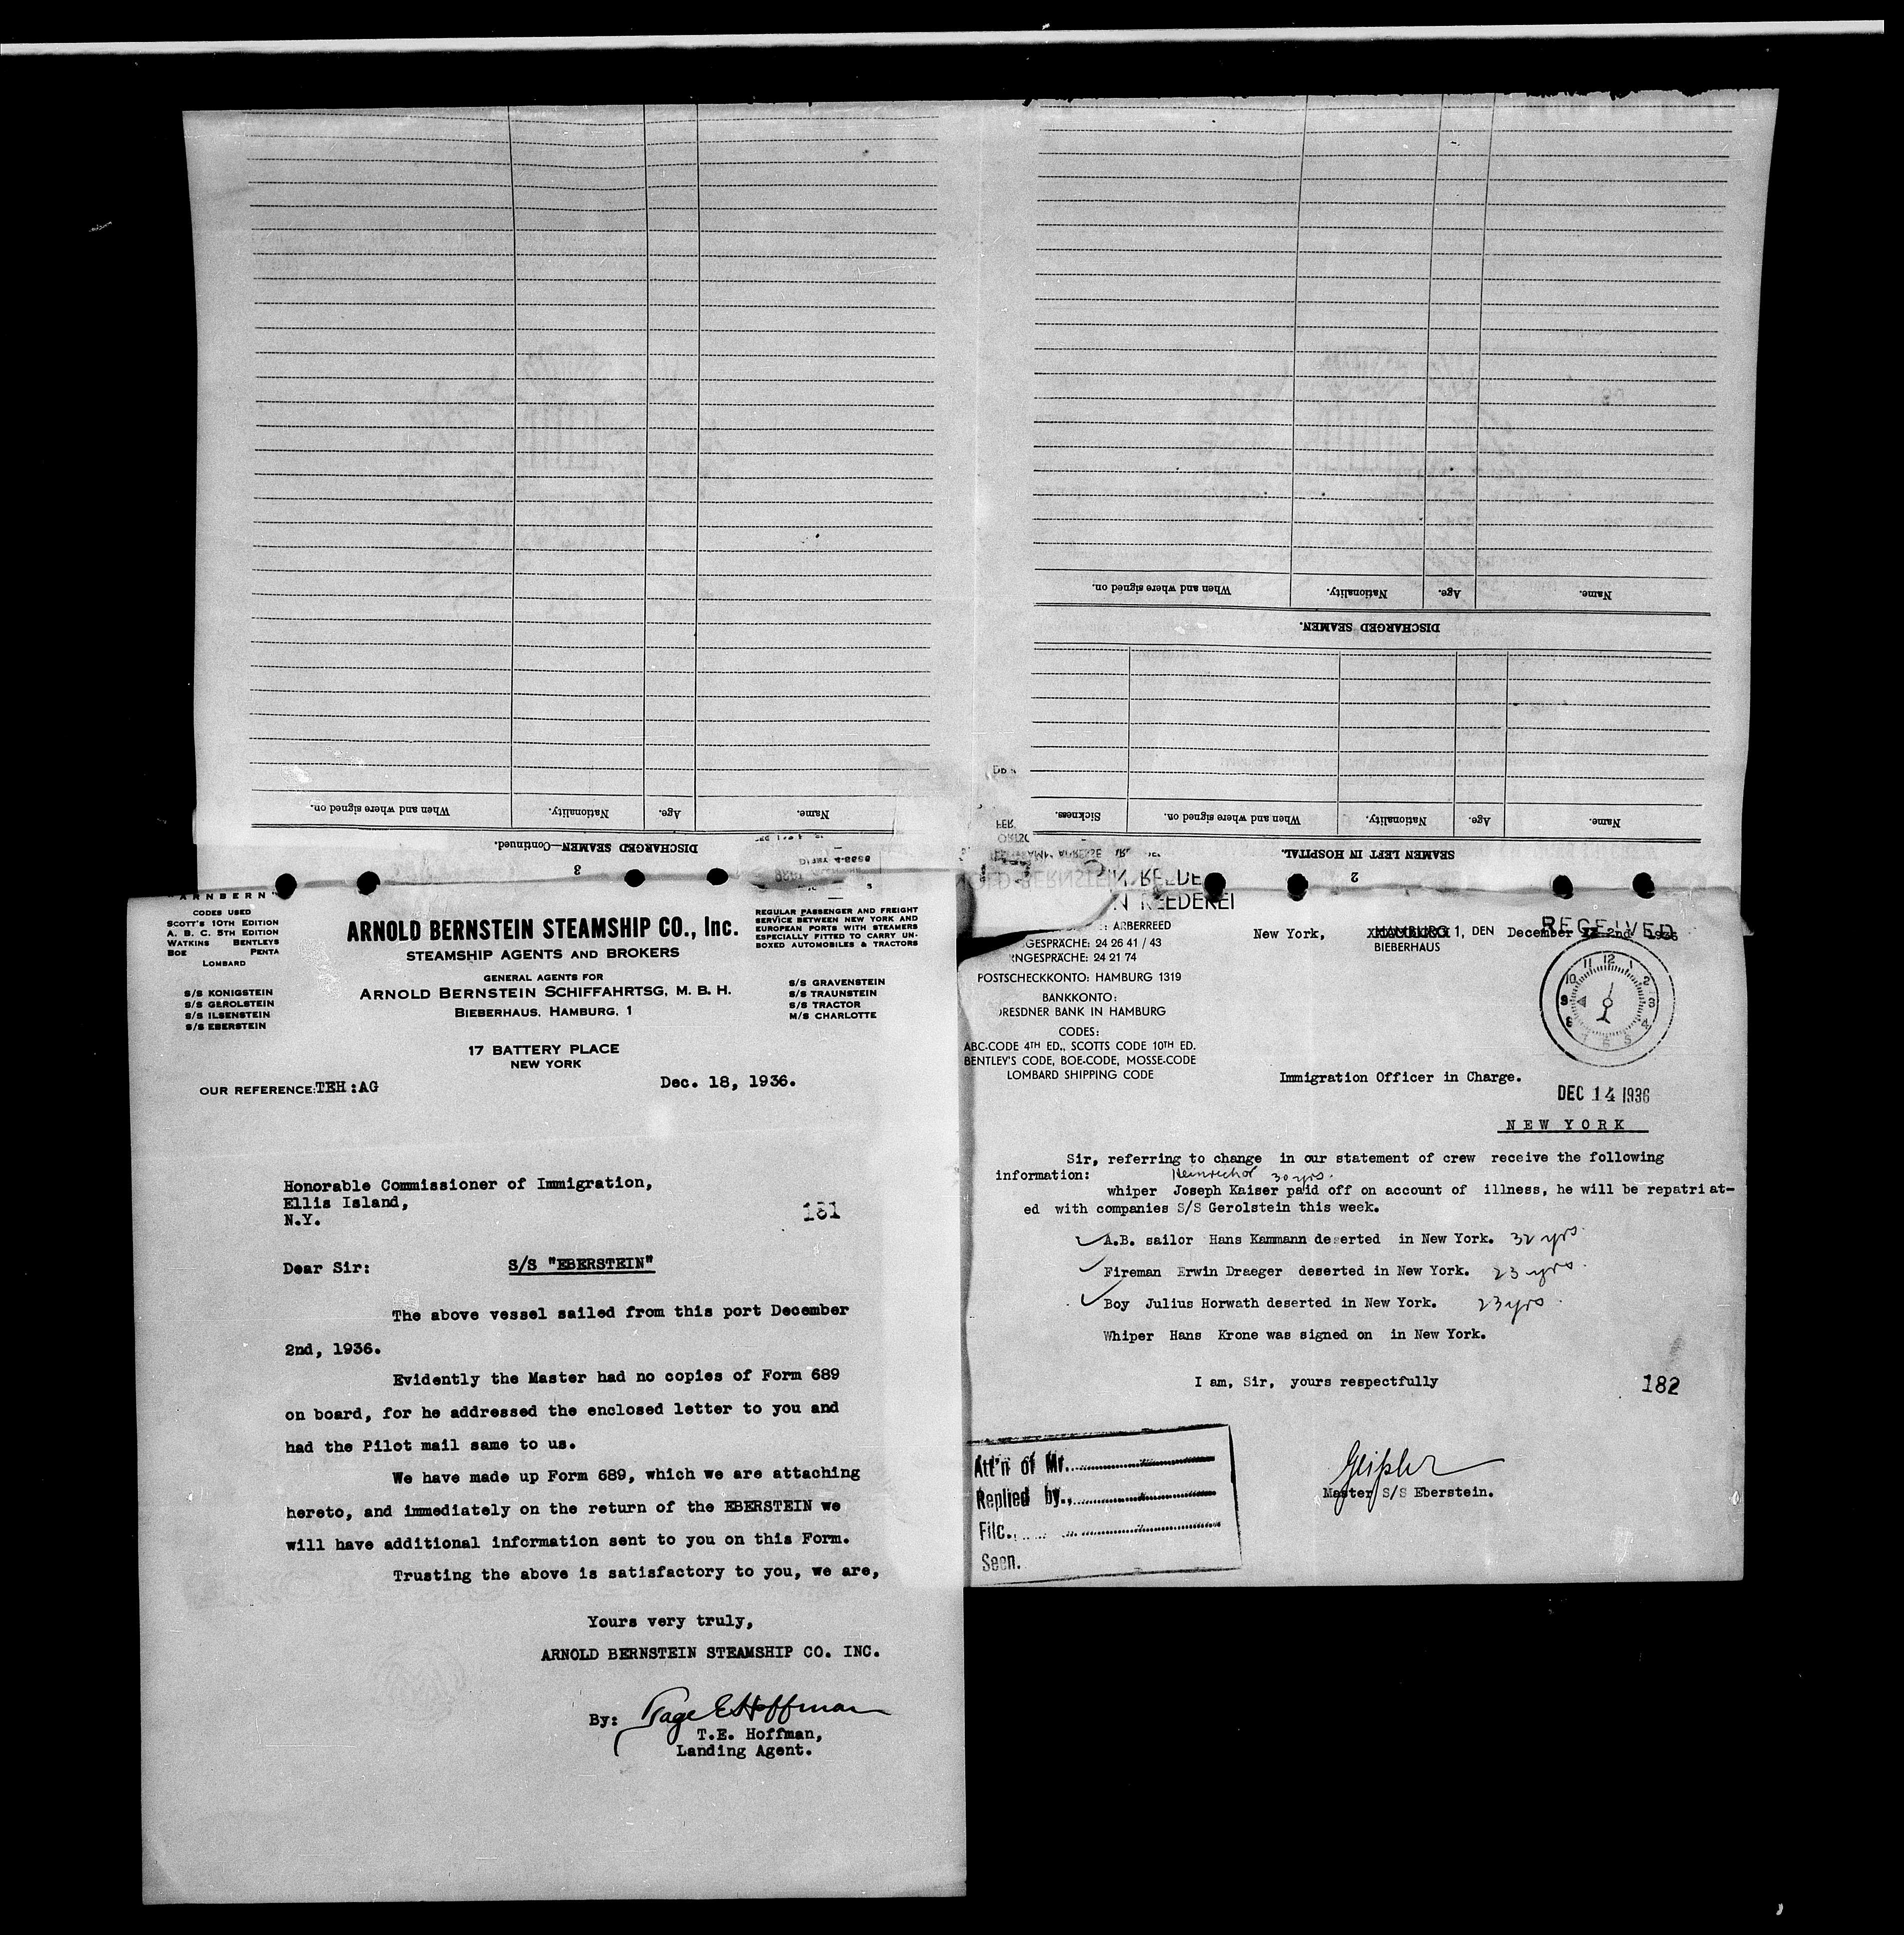 Name.
Age.
Nationality.
When and where signed on.
DISCHARGED SEAMEN—Continued.
3
Name.
Age.
Nationality.
When and where signed on.
DISCHARGED SEAMEN.
Name.
Age.
Nationality.
When and where signed on.
Sickness.
SEAMEN LEFT IN HOSPITAL.
2
ARNBERN
CODES USED
SCOTT'S 10TH EDITION
A. B. C. 5TH EDITION
WATKINS BENTLEYS
BOE PENTA
LOMBARD
S/S KONIGSTEIN
S/S GEROLSTEIN
S/S ILSENSTEIN
S/S EBERSTEIN
ARNOLD BERNSTEIN STEAMSHIP CO., Inc.
STEAMSHIP AGENTS AND BROKERS
GENERAL AGENTS FOR
ARNOLD BERNSTEIN SCHIFFAHRTSG, M. B. H.
BIEBERHAUS, HAMBURG, 1
17 BATTERY PLACE
NEW YORK
REGULAR PASSENGER AND FREIGHT
SERVICE BETWEEN NEW YORK AND
EUROPEAN PORTS WITH STEAMERS
ESPECIALLY FITTED TO CARRY UN-
BOXED AUTOMOBILES & TRACTORS
S/S GRAVENSTEIN
S/S TRAUNSTEIN
S/S TRACTOR
M/S CHARLOTTE
OUR REFERENCE: TEH:AG
Dec. 18, 1936.
Honorable Commissioner of Immigration,
Ellis Island,
N.Y.
181
Dear Sir: S/S "EBERSTEIN"
The above vessel sailed from this port December
2nd, 1936.
Evidently the Master had no copies of Form 689
on board, for he addressed the enclosed letter to you and
had the Pilot mail same to us.
We have made up Form 689, which we are attaching
hereto, and immediately on the return of the EBERSTEIN we
will have additional information sent to you on this Form.
Trusting the above is satisfactory to you, we are,
Yours very truly,
ARNOLD BERNSTEIN STEAMSHIP CO. INC.
By: Tage E Hoffman
T.E. Hoffman,
Landing Agent.
N REEDEREI
: ARBERREED
GESPRÄCHE: 24 26 41 / 43
RNGESPRÄCHE: 24 21 74
POSTSCHECKKONTO: HAMBURG 1319
BANKKONTO:
DRESDNER BANK IN HAMBURG
CODES:
ABC-CODE 4TH ED., SCOTTS CODE 10TH ED.
BENTLEY'S CODE, BOE-CODE, MOSSE-CODE
LOMBARD SHIPPING CODE
New York, HAMBURG 1, DEN December 2nd 1936
BIEBERHAUS
RECEIVED
12 1 2 3 4 5 6 7 8 9 10 11
DEC 14 1936
Immigration Officer in Charge.
NEW YORK
Sir, referring to change in our statement of crew receive the following
information:
30 yrs.
whiper Joseph Kaiser paid off on account of illness, he will be repatriat-
ed with companies S/S Gerolstein this week.
A.B. sailor Hans Kammann deserted in New York. 32 yrs.
Fireman Erwin Draeger deserted in New York. 23 yrs.
Boy Julius Horwath deserted in New York. 23 yrs.
Whiper Hans Krone was signed on in New York.
I am, Sir, yours respectfully
182
Master S/S Eberstein.
Att'n of Mr.
Replied by.
File.
Seen.